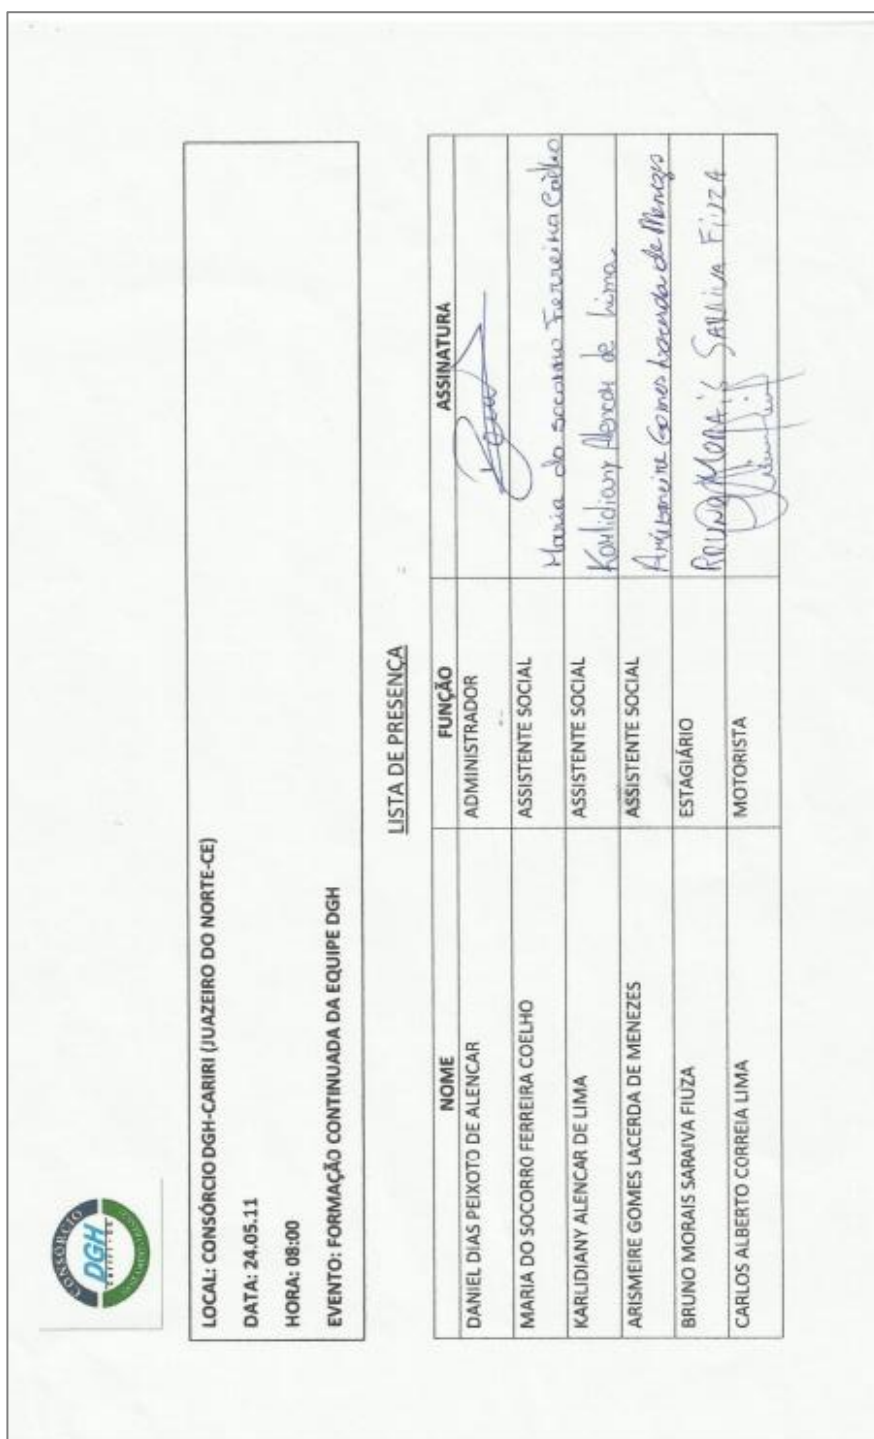 CONSÓRCIO
DGH
CARIRI - CE
LOCAL: CONSÓRCIO DGH-CARIRI (JUAZEIRO DO NORTE-CE)
DATA: 24.05.11
HORA: 08:00
EVENTO: FORMAÇÃO CONTINUADA DA EQUIPE DGH
LISTA DE PRESENÇA
NOME FUNÇÃO ASSINATURA
DANIEL DIAS PEIXOTO DE ALENCAR ADMINISTRADOR
MARIA DO SOCORRO FERREIRA COELHO ASSISTENTE SOCIAL Maria do Socorro Ferreira Coelho
KARLIDIANY ALENCAR DE LIMA ASSISTENTE SOCIAL Karlidiany Alencar de Lima.
ARISMEIRE GOMES LACERDA DE MENEZES ASSISTENTE SOCIAL Arismeire Gomes Lacerda de Menezes
BRUNO MORAIS SARAIVA FIUZA ESTAGIÁRIO BRUNO MORAIS SARAIVA FIUZA
CARLOS ALBERTO CORREIA LIMA MOTORISTA